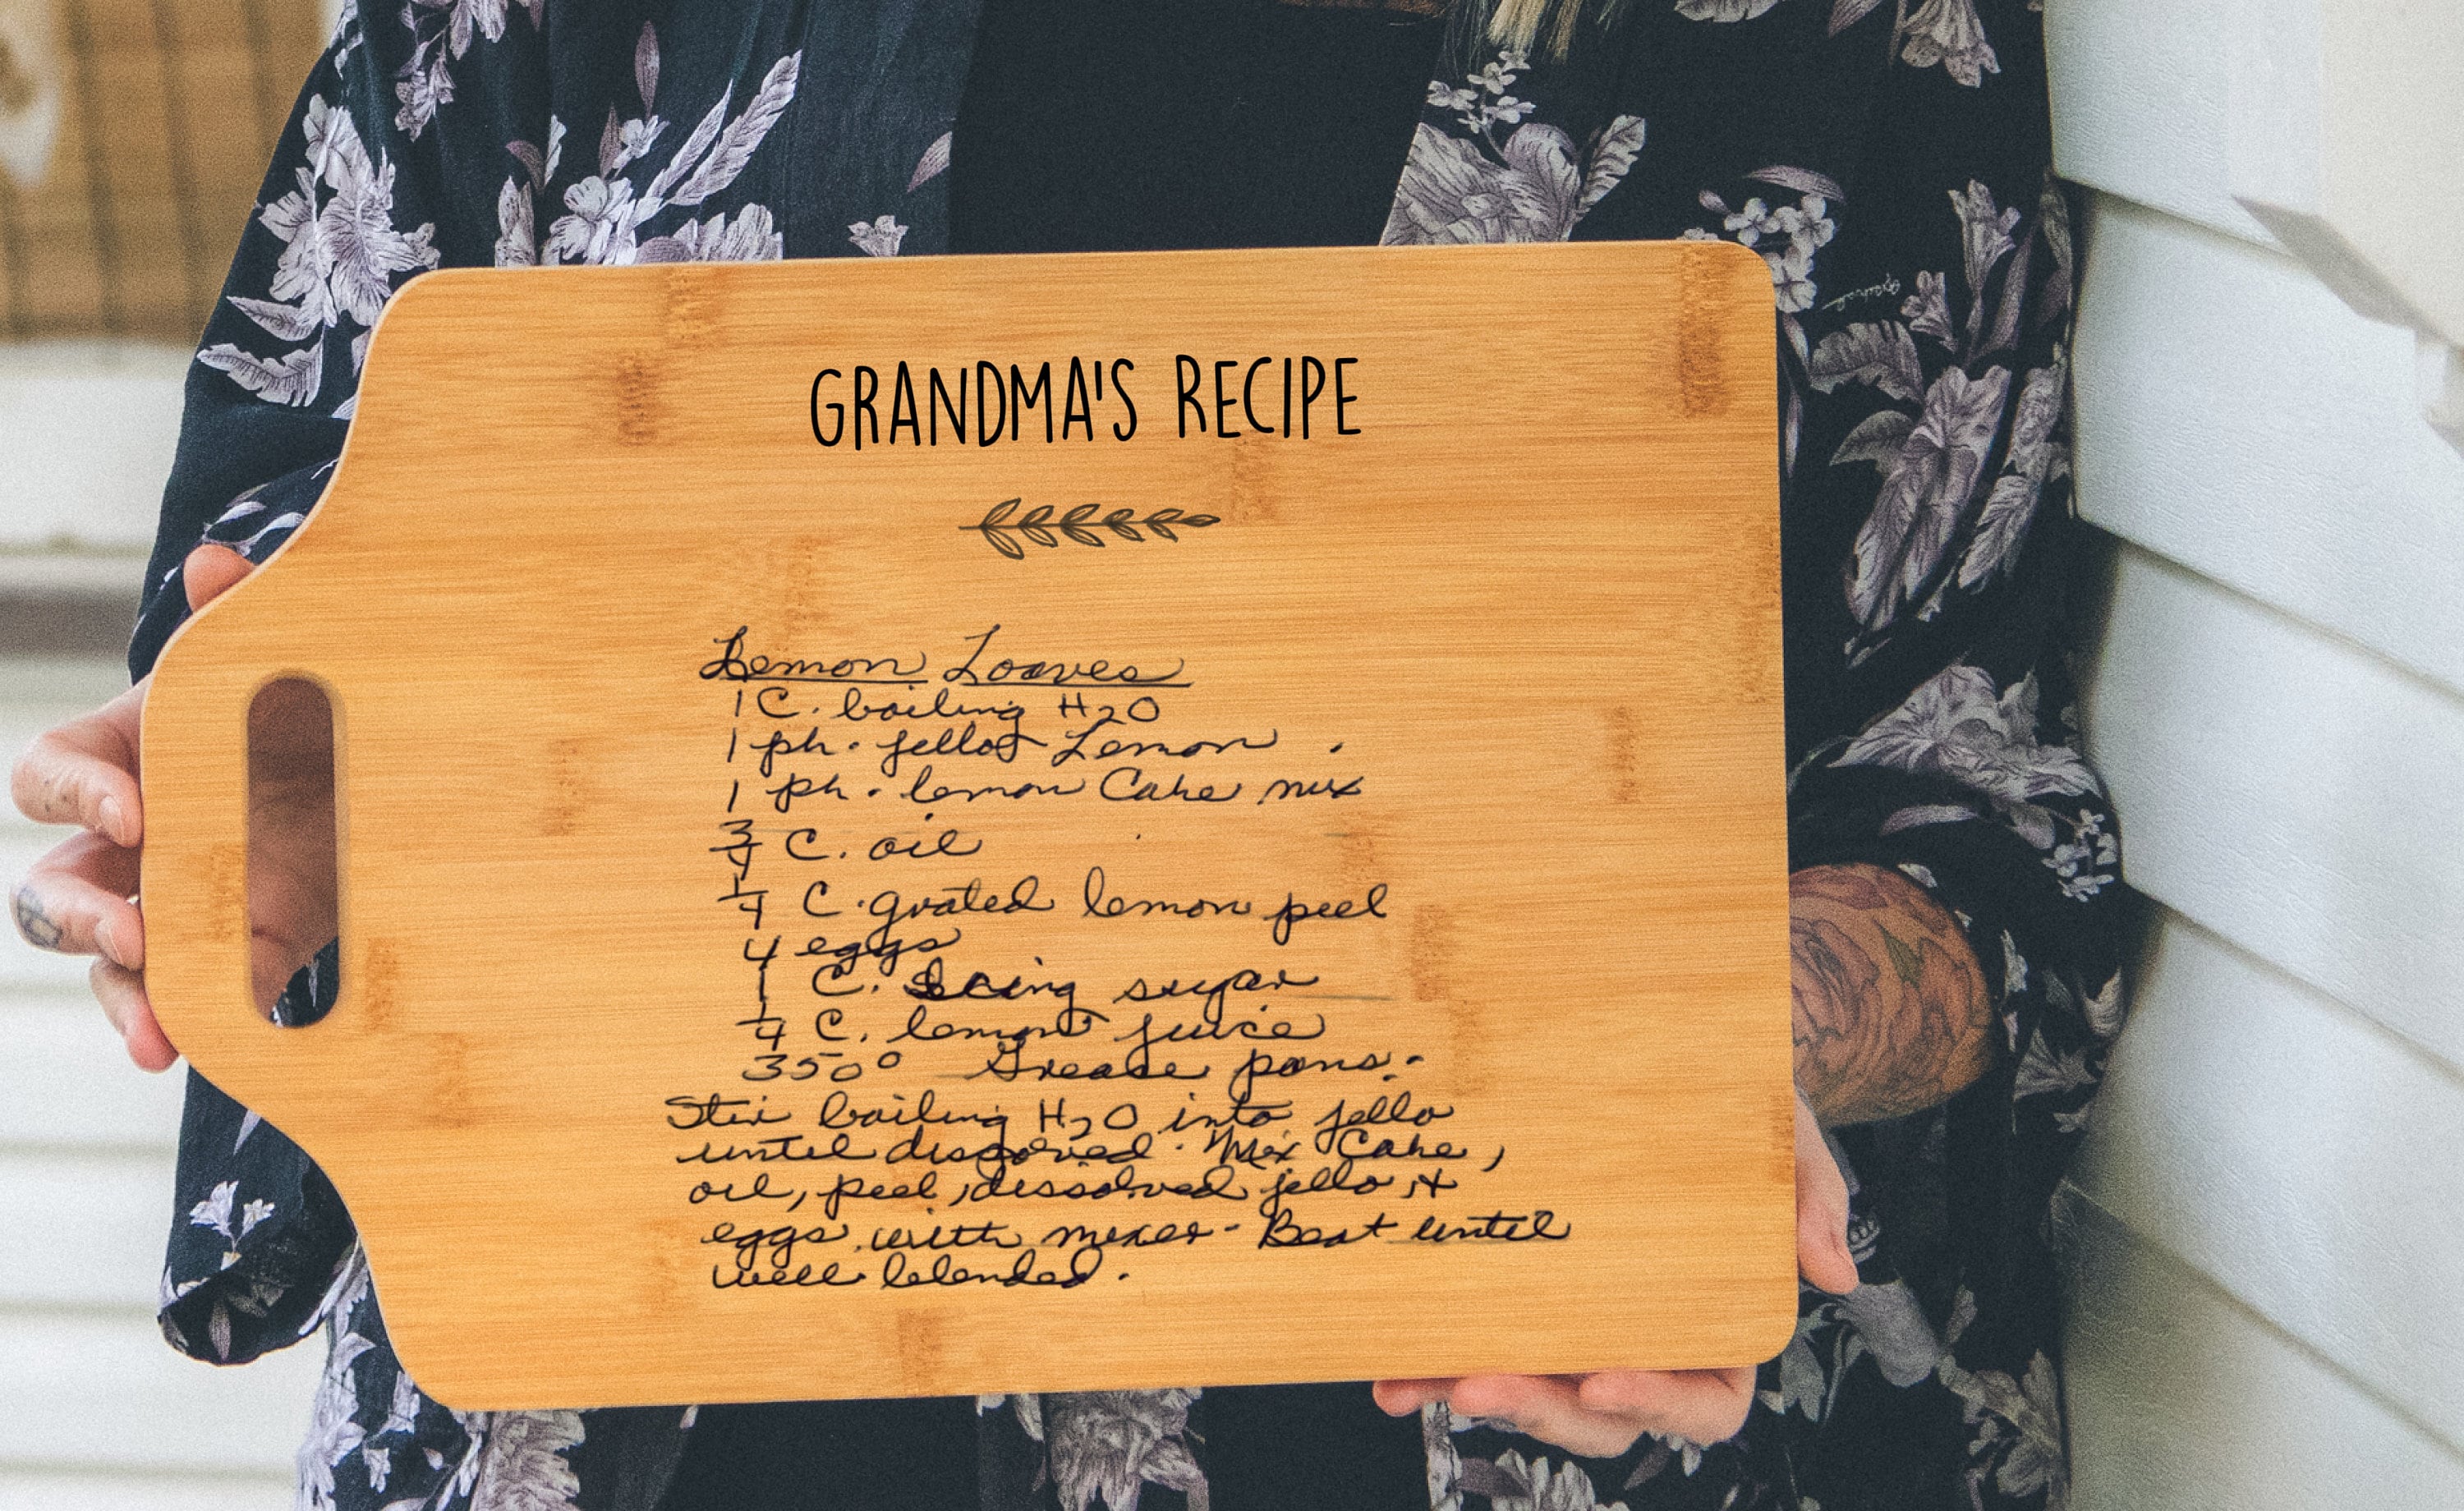 GRANDMA'S RECIPE
Lemon Loaves
1 C. boiling H2O
1 pk. jello Lemon.
1 pk. lemon Cake mix
3/4 C. oil
1/4 C. grated lemon peel
4 eggs
1 C. Icing sugar
1/4 C. lemon juice
350° Grease pans.
Stir boiling H2O into jello
until dissolved. Mix Cake,
oil, peel, dissolved jello, &
eggs with mixer - Beat until
well blended.